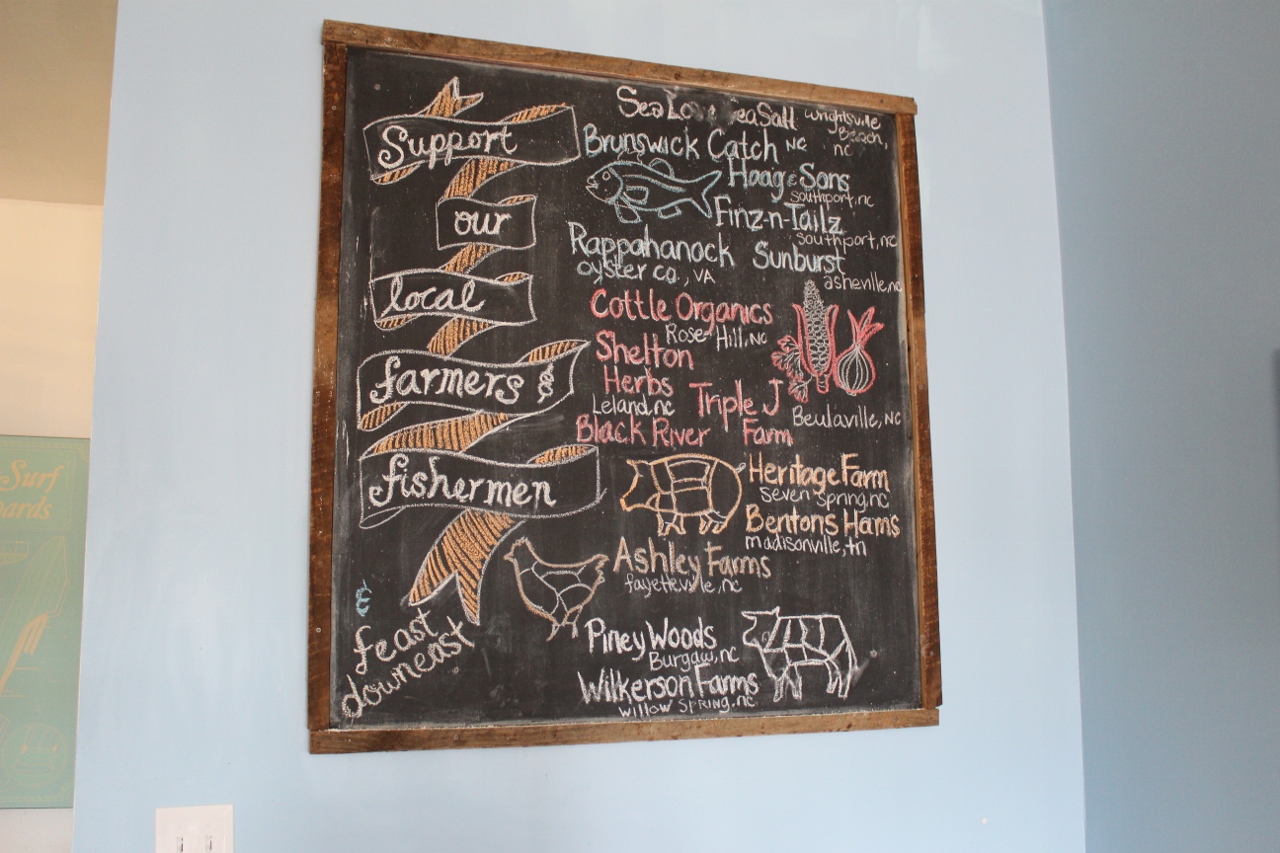 Support
our
local
farmers &
fishermen
&
feast
downeast
Sea Sea Salt
Wrightsville
Beach,
nc
Brunswick Catch NC
Haag & Sons
Southport, nc
Finz-n-Tailz
Southport, nc
Rappahanock
oyster co., VA
Sunburst
asheville, nc
Cottle Organics
Rose Hill, NC
Shelton
Herbs
Leland, nc
Triple J
Farm
Beulaville, NC
Black River
Heritage Farm
Seven Spring, nc
Bentons Hams
madisonville, tn
Ashley Farms
fayetteville, nc
Piney Woods
Burgaw, nc
Wilkerson Farms
willow SPRING, nc
Surf